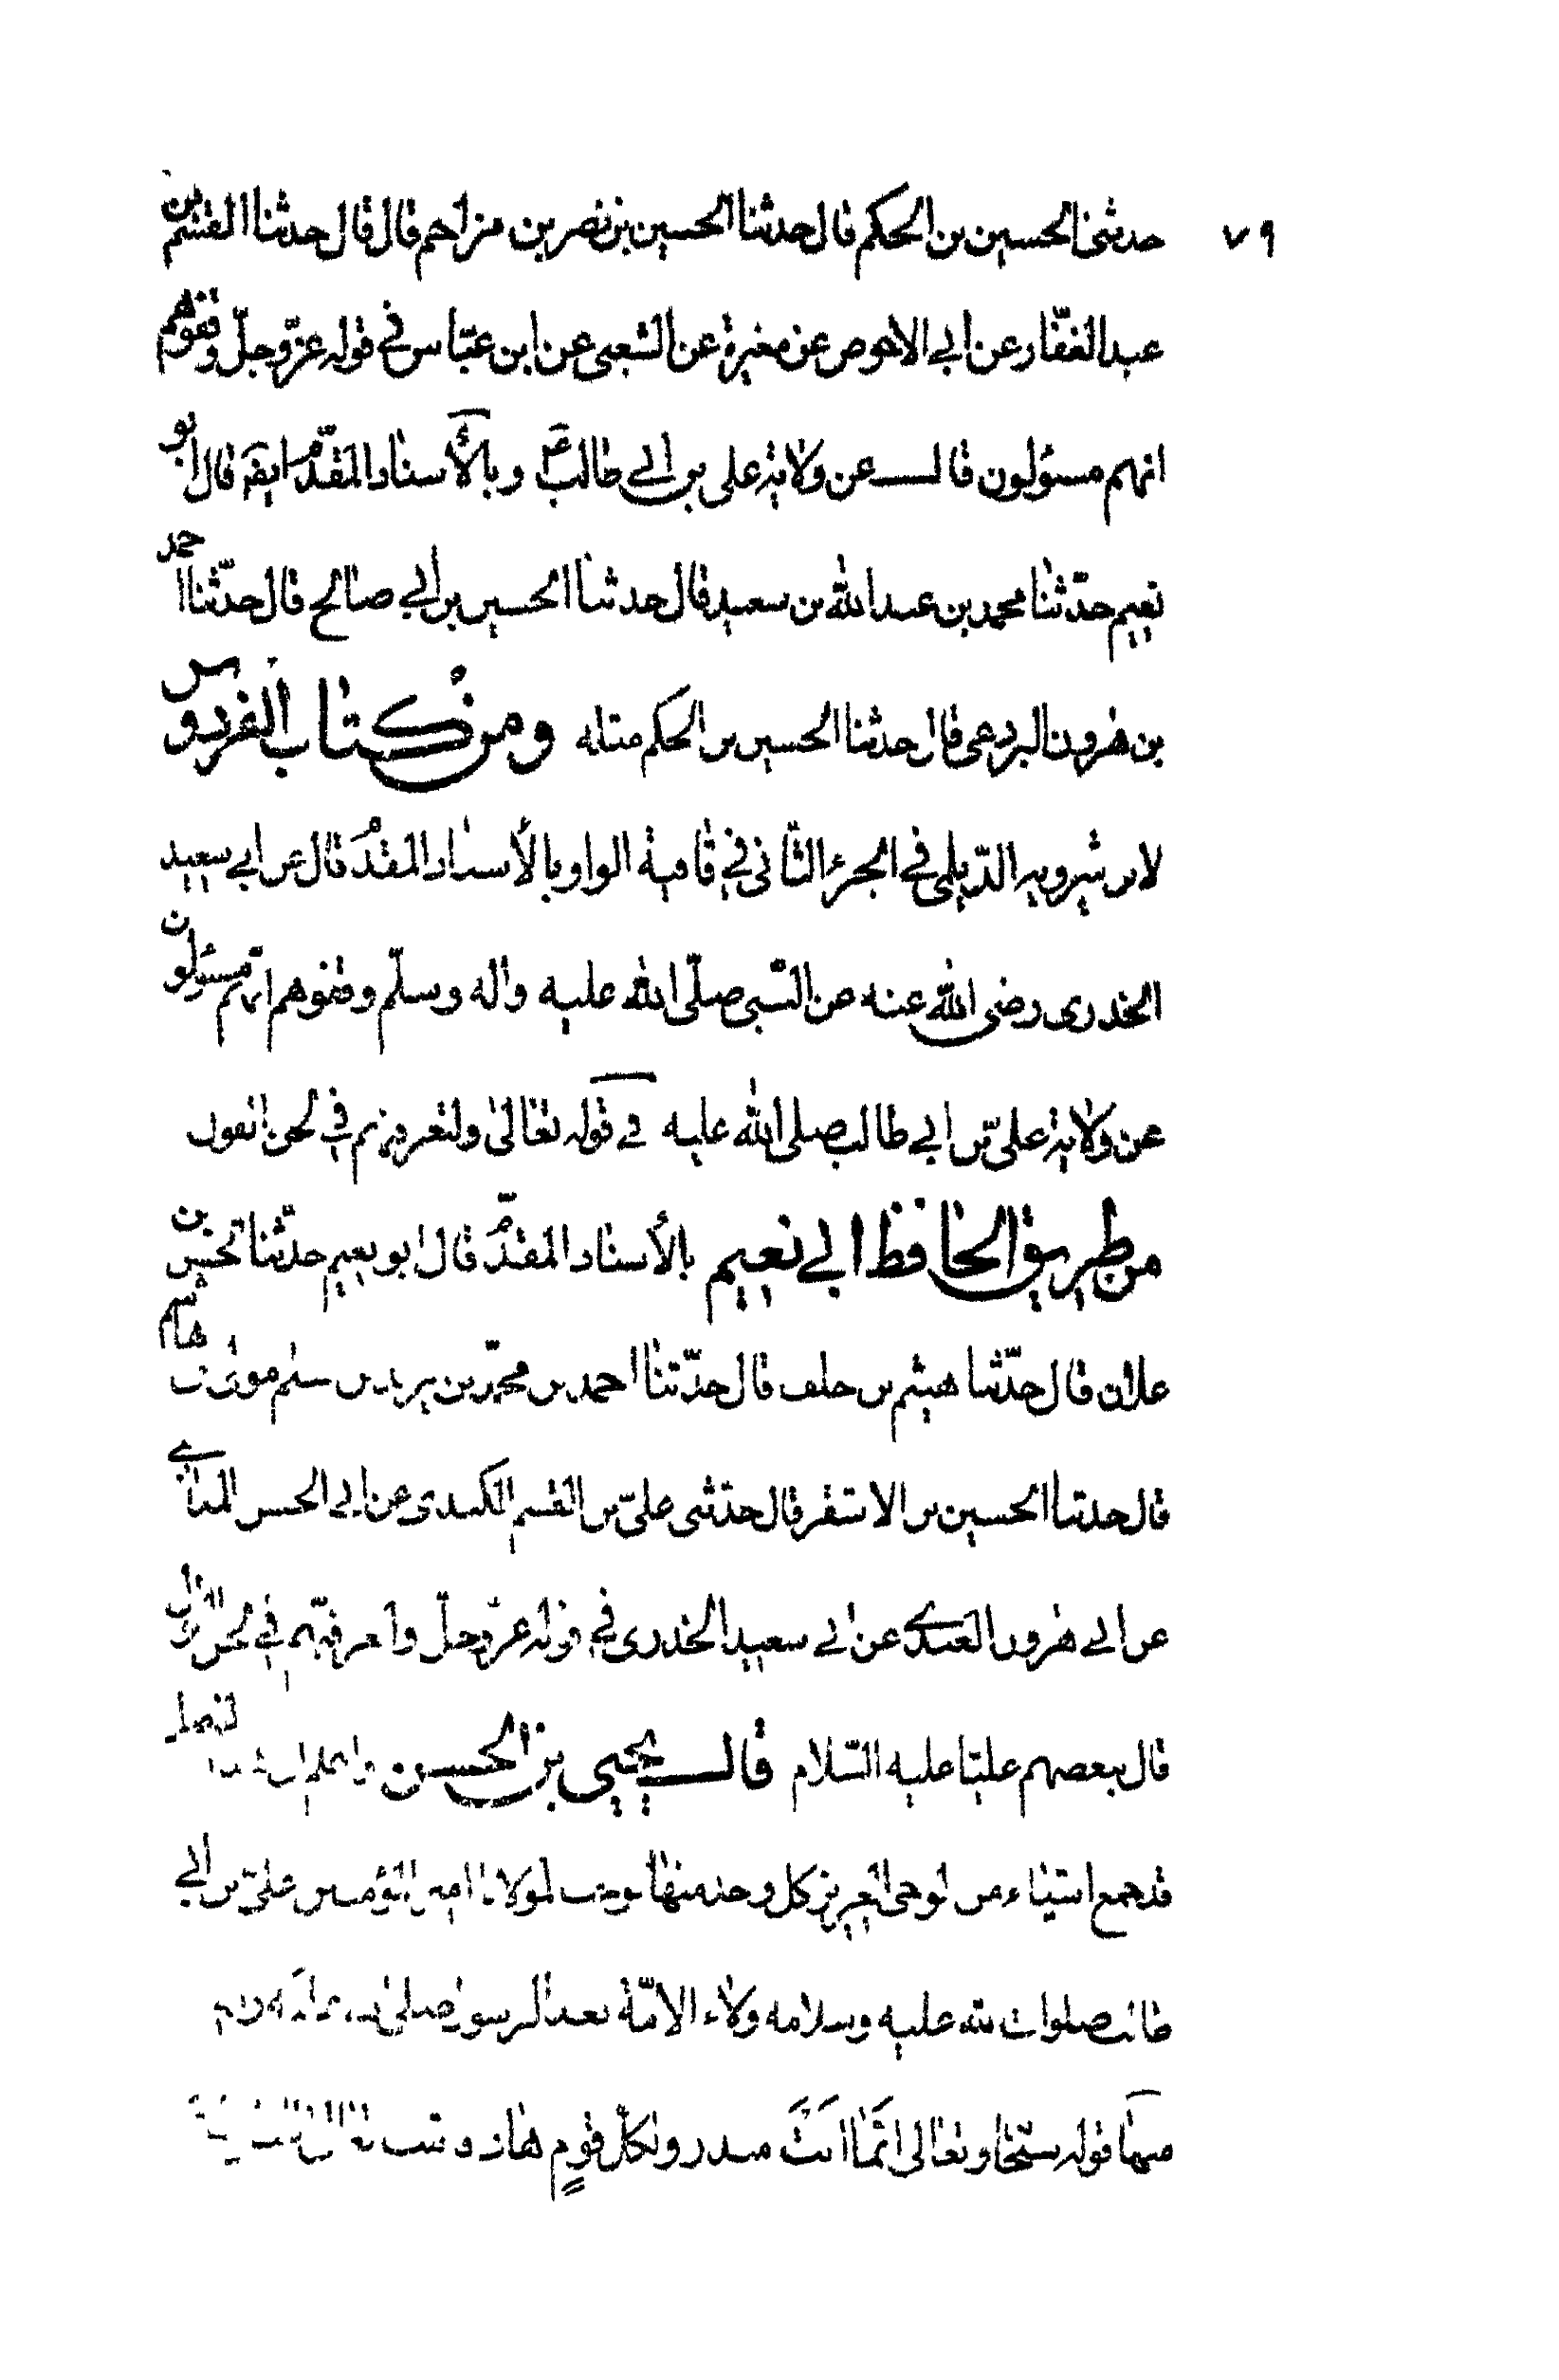 ٧٩
حدثني الحسين بن الحكم قال حدثنا الحسين بن نصر بن مزاحم قال قال حدثنا القسم بن
عبد الغفّار عن ابي الاحوص عن مغيرة عن الشعبي عن ابن عبّاس في قوله عزّ وجلّ وقفوهم
انهم مسئولون قال عن ولاية علي بن ابي طالب ع وبالأسناد المقدّم قال ابو
نعيم حدّثنا محمد بن عبد الله بن سعيد قال حدثنا الحسين بن ابي صالح قال حدّثنا احمد
بن هرون البردعي قال حدثنا الحسين بن الحكم مثله ومن كتاب الفردوس
لابن شيرويه الدّيلمي في الجزء الثّاني في قافية الواو بالأسناد المقدّم قال عن ابي سعيد
الخدري رضي الله عنه عن النّبي صلّى الله عليه واله وسلّم وقفوهم انّهم مسئولون
عن ولاية عليّ بن ابي طالب صلى الله عليه في قوله تعالى ولتعرفنهم في لحن القول
من طريق الحافظ ابي نعيم بالأسناد المقدّم قال ابو نعيم حدّثنا الحسن بن
علان قال حدّثنا هيثم بن خلف قال حدّثنا احمد بن محمّد بن يزيد بن سليم مولى بني هاشم
قال حدثنا الحسين بن الاشقر قال حدّثني عليّ بن القسم الكندي عن ابي الحسن المدائني
عن ابي هرون العبدي عن ابي سعيد الخدري في قوله عزّ وجلّ ولتعرفنّهم في لحن القول
قال ببعضهم عليّا عليه السّلام قال يحيى بن الحسن واعلم ان
قد جمع اشياء من الوحي العزيز كل وحدة منها توجب لمولانا امير المؤمنين عليّ بن ابي
طالب صلوات الله عليه وسلامه ولاء الامّة بعد الرسول صلى
منها قوله سبحانه وتعالى انّما انت منذر ولكلّ قوم هاد